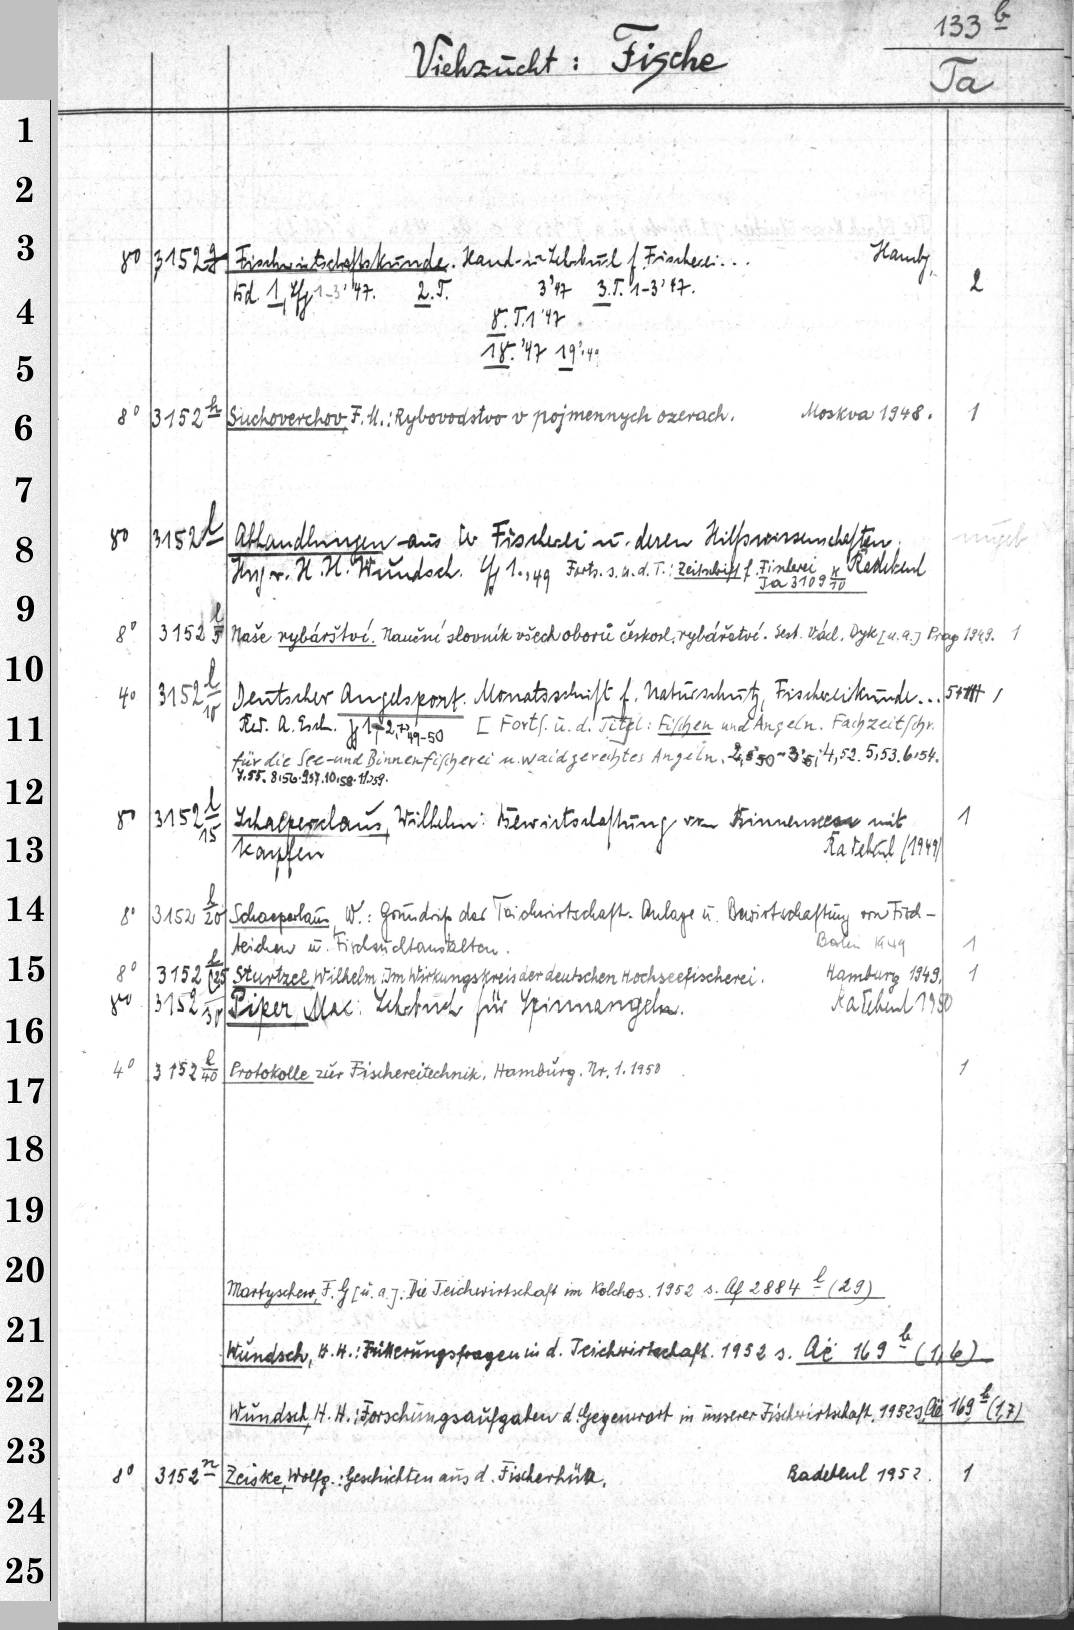 133 b
Viehzucht: Fische
Ta
1
2
3
8° 3152 g Fischwirtschaftskunde. Hand- u. Lehrbuch f. Fischerei... Hambg.
Bd. 1, Lfg 1-3, '47. 2. T. 3 '47 3. T. 1-3, '47. 2
4
8. T. 1 '47
5
18. '47 19, '49
6
8° 3152 h Suchoverchov, F. M.: Rybovodstvo v pojmennych ozerach. Moskva 1948. 1
7
8
8° 3152 l Abhandlungen aus der Fischerei u. deren Hilfswissenschaften.
Hrsg. v. H. H. Wundsch. Lfg 1., 49 Forts. s. u. d. T.: Zeitschrift f. Fischerei Radebeul
Ta 3109 k/70
9
8° 3152 l/5 Naše rybářství. Naučný slovník všech oborů českosl. rybářství. Sest. Václ. Dyk [u.a.] Prag 1949. 1
10
4° 3152 l/10 Deutscher Angelsport. Monatsschrift f. Naturschutz, Fischereikunde...
11
Red. A. Esch. Jg 1-2, 49-50 [Forts. u. d. Titel: Fischen und Angeln. Fachzeitschr.
für die See- und Binnenfischerei u. waidgerechtes Angeln. 4,52. 5,53. 6,54.
7,55. 8,56. 9,57. 10,58. 11,59.
12
8° 3152 l/15 Schaeperclaus, Wilhelm: Bewirtschaftung von Binnenseen mit 1
13
Karpfen Radebeul (1949)
14
8° 3152 l/20 Schaeperclaus, W.: Grundriß der Teichwirtschaft. Anlage u. Bewirtschaftung von Fisch-
teichen u. Fischzuchtanstalten. Berlin 1949 1
15
8° 3152 l/25 Sturtzel, Wilhelm: Im Wirkungskreis der deutschen Hochseefischerei. Hamburg 1949. 1
8° 3152 l/30 Piper, Max: Lehrbuch für Spinnangeln. Radebeul 1950
16
4° 3152 l/40 Protokolle zur Fischereitechnik. Hamburg. Nr. 1. 1950 1
17
18
19
20
Martyschew, F. G [u. a.]: Die Teichwirtschaft im Kolchos. 1952 s. Af 2884 l (29)
21
Wundsch, H. H.: Fütterungsfragen in d. Teichwirtschaft. 1952 s. Aë 169 b (1,6)
22
Wundsch, H. H.: Forschungsaufgaben d. Gegenwart in unserer Fischwirtschaft. 1952 s. Aë 169 b (1,7)
23
8° 3152 n Zeiske, Wolfg.: Geschichten aus d. Fischerhütte. Radebeul 1952. 1
24
25